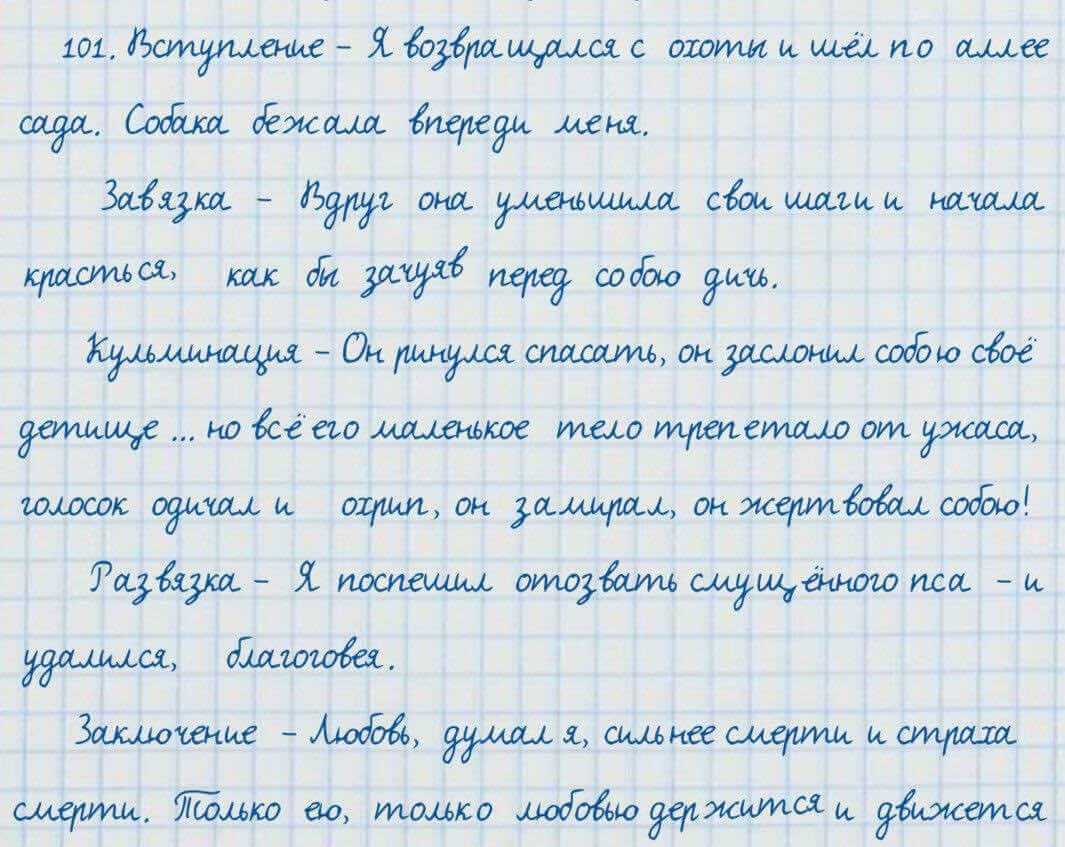 101. Вступление - Я возвращался с охоты и шёл по аллее
сада. Собака бежала впереди меня.
Завязка - Вдруг она уменьшила свои шаги и начала
красться, как бы зачуяв перед собою дичь.
Кульминация - Он ринулся спасать, он заслонил собою своё
детище ... но всё его маленькое тело трепетало от ужаса,
голосок одичал и охрип, он замирал, он жертвовал собою!
Развязка - Я поспешил отозвать смущённого пса - и
удалился, благоговея.
Заключение - Любовь, думал я, сильнее смерти и страха
смерти. Только ею, только любовью держится и движется